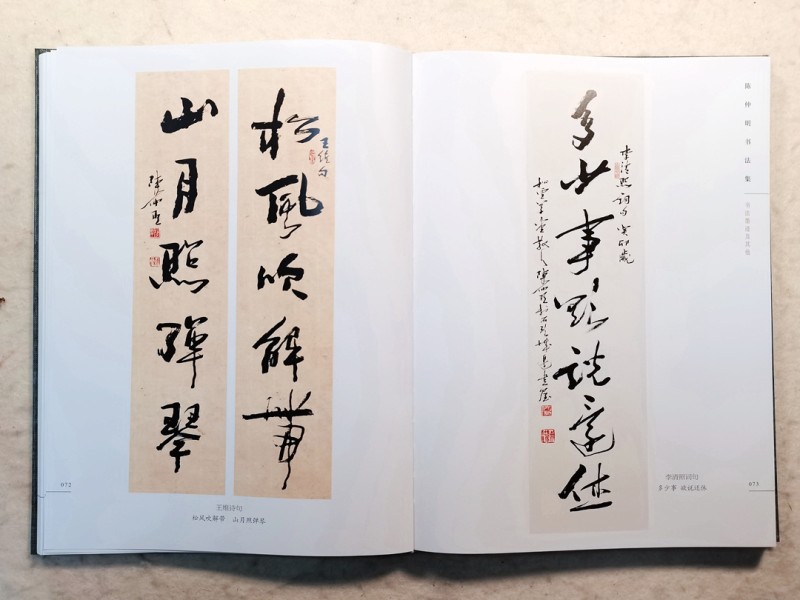 松風吹解帶
王維句
山月照彈琴
072
王维诗句
松风吹解带 山月照弹琴
李清照詞句 癸卯歲
多少事欲説還休
陈仲明书法集
李清照词句
多少事 欲说还休
073